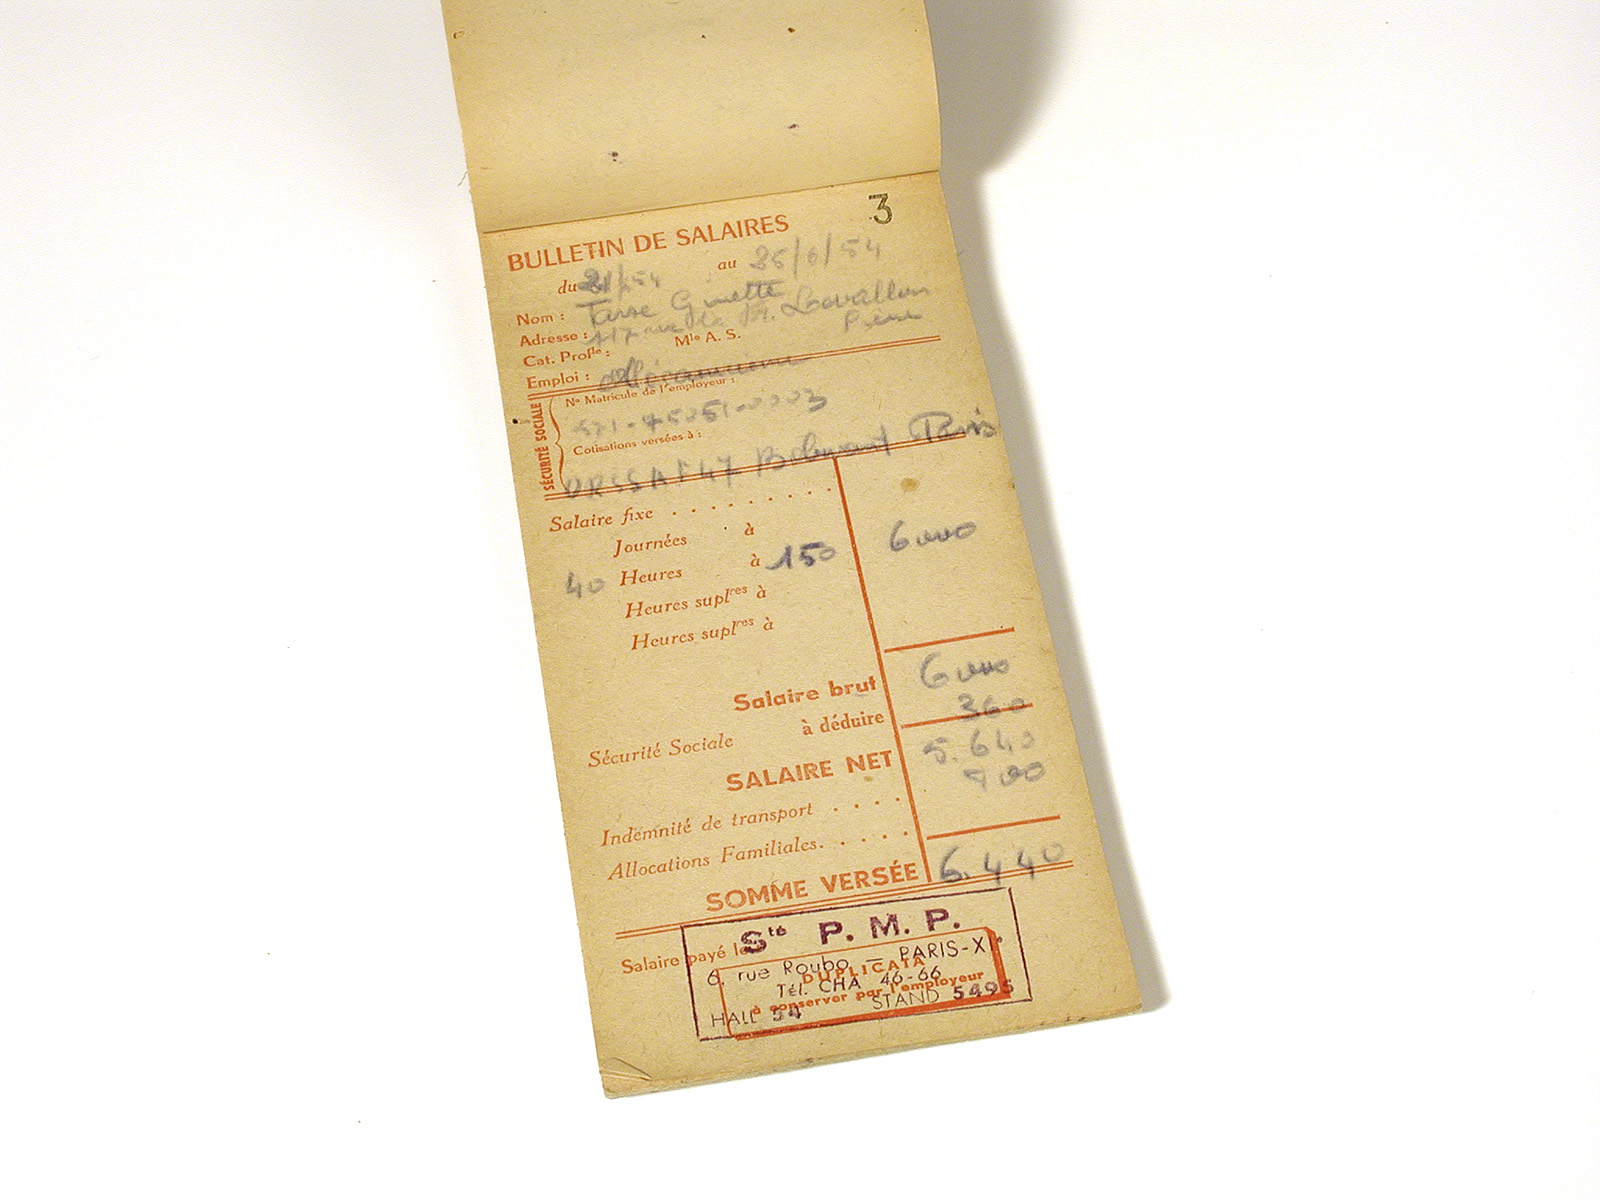 3
BULLETIN DE SALAIRES
du au 25/6/54
Nom : Ginette
Adresse : 117 rue
Cat. Profle : Mle A. S.
Emploi : Mécanicienne
SÉCURITÉ SOCIALE
No Matricule de l'employeur :
Cotisations versées à :
URSSAF 47 Paris
Salaire fixe . . . . . . . . .
Journées à 6000
40 Heures à 150
Heures suplres à
Heures suplres à
Salaire brut 6000
Sécurité Sociale à déduire 360
SALAIRE NET 5.640
Indemnité de transport . . . .
Allocations Familiales. . . . .
SOMME VERSÉE 6.440
Salaire payé le
Sté P. M. P.
6, rue Roubo — PARIS-XIe
DUPLICATA
Tél. CHA 46-66
à conserver par l'employeur
HALL 54 STAND 5495